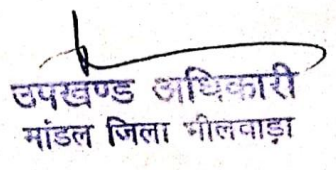 उपखण्ड अधिकारी
मांडल जिला भीलवाड़ा